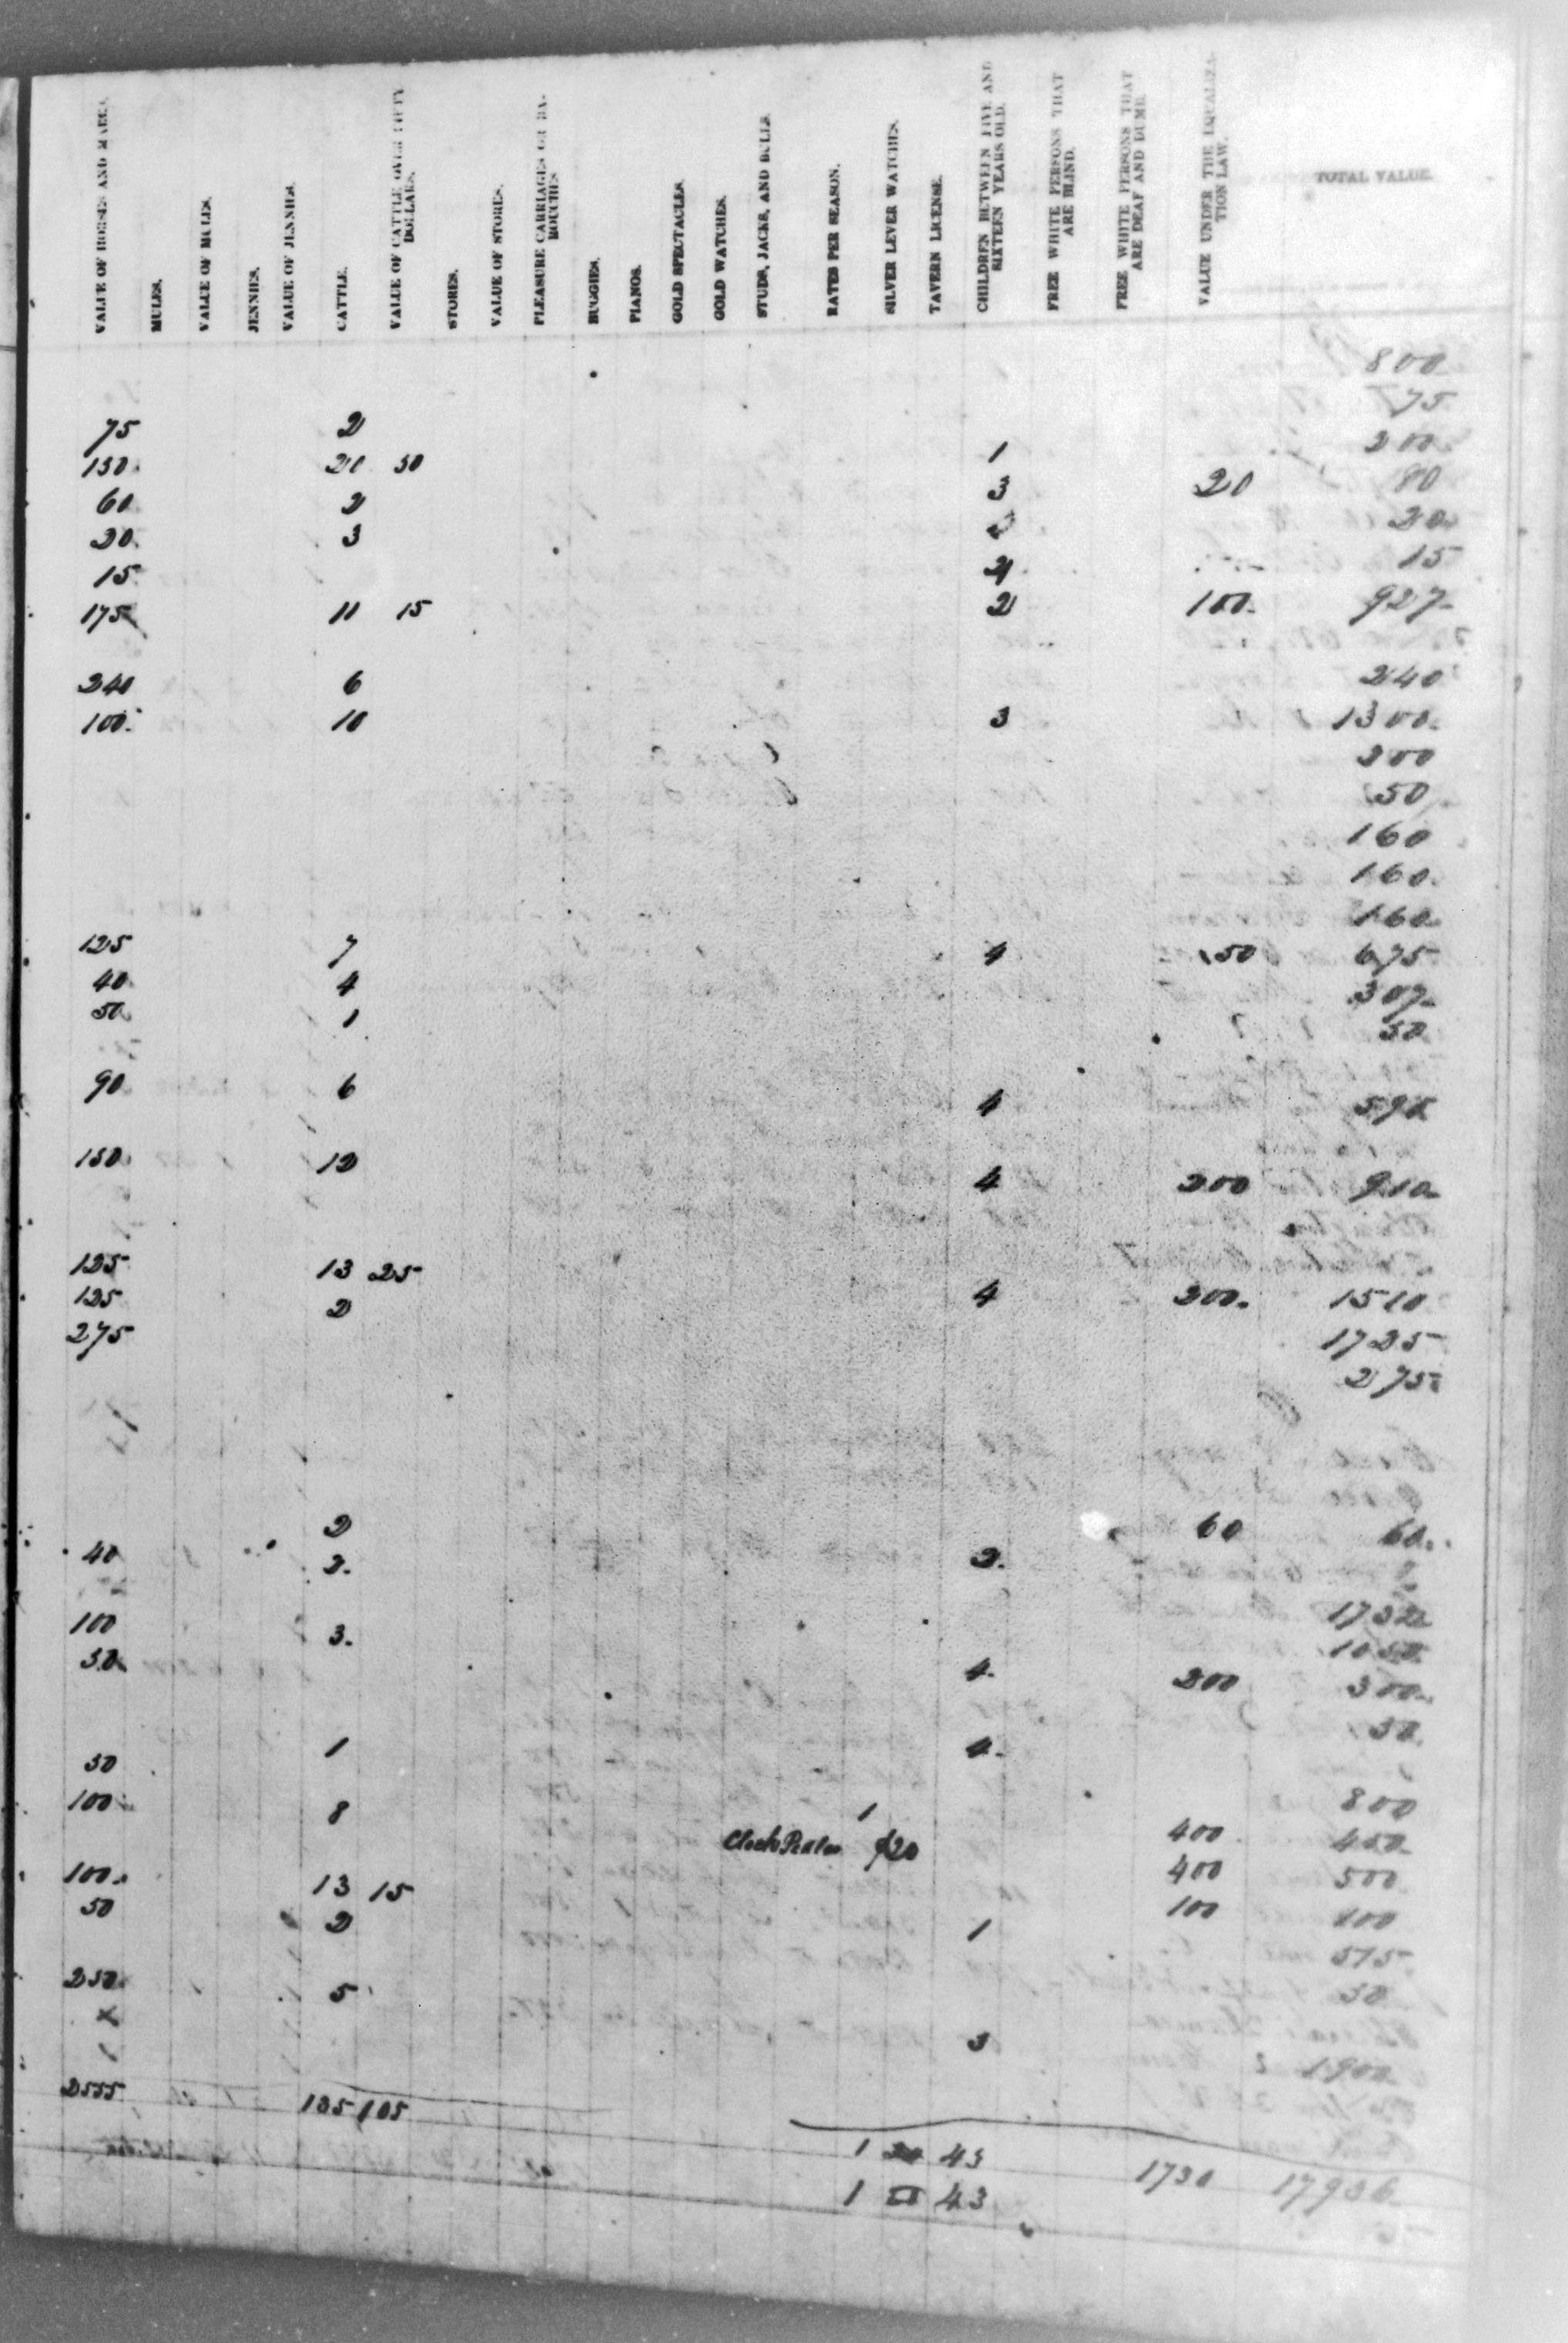 VALUE OF HORSES AND MARES.
MULES.
VALUE OF MULES.
JENNIES.
VALUE OF JENNIES.
CATTLE.
VALUE OF CATTLE OVER FIFTY DOLLARS.
STORES.
VALUE OF STORES.
PLEASURE CARRIAGES OR BAROUCHES
BUGGIES.
PIANOS.
GOLD SPECTACLES.
GOLD WATCHES.
STUDS, JACKS, AND BULLS.
RATES PER SEASON.
SILVER LEVER WATCHES.
TAVERN LICENSE.
CHILDREN BETWEEN FIVE AND SIXTEEN YEARS OLD.
FREE WHITE PERSONS THAT ARE BLIND.
FREE WHITE PERSONS THAT ARE DEAF AND DUMB.
VALUE UNDER THE EQUALIZATION LAW.
TOTAL VALUE.
800
75
75 2 200
150 20 50 1 80
60 2 3 20 20
20 3 15
15 2
175 11 15 2 100 927
240 6 240
100 10 3 1300
200
50
160
160
160
125 7 4 50 675
40 4 307
50 1 50
90 6 4
150 12 4 200 910
125 13 25
125 2 4 200 1510
275 1725
275
2 60 60
40 2 2
100 3 1732
50 4 200 1050
300
50 1 4 50
100 8 1 800
Clock Pedler $20 400 450
100 13 15 400 500
50 2 1 100 100
575
250 5 50
x 3
1900
2555 135 105
1 43 1730 17936
1 43